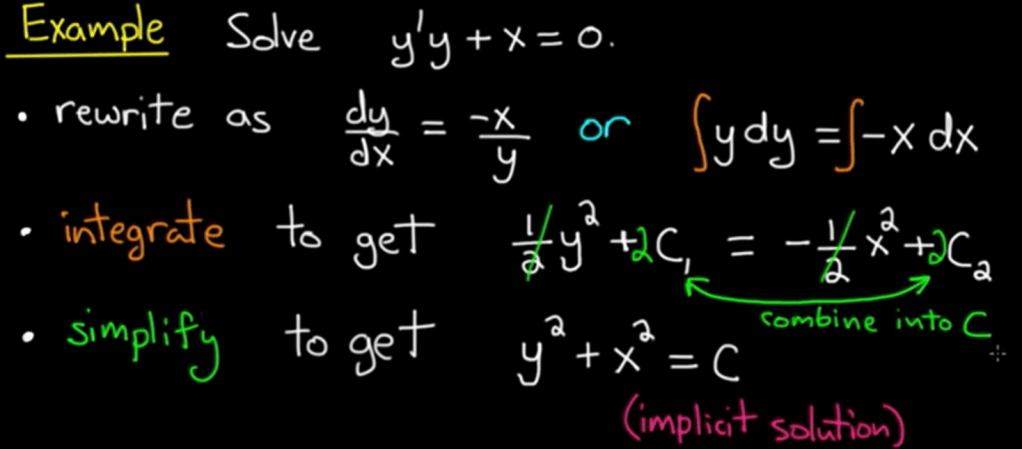 Example Solve y'y + x = 0.
• rewrite as dy/dx = -x/y or ∫y dy = ∫-x dx
• integrate to get 1/2 y² + 2C₁ = -1/2 x² + 2C₂
combine into C
• simplify to get y² + x² = C
(implicit solution)